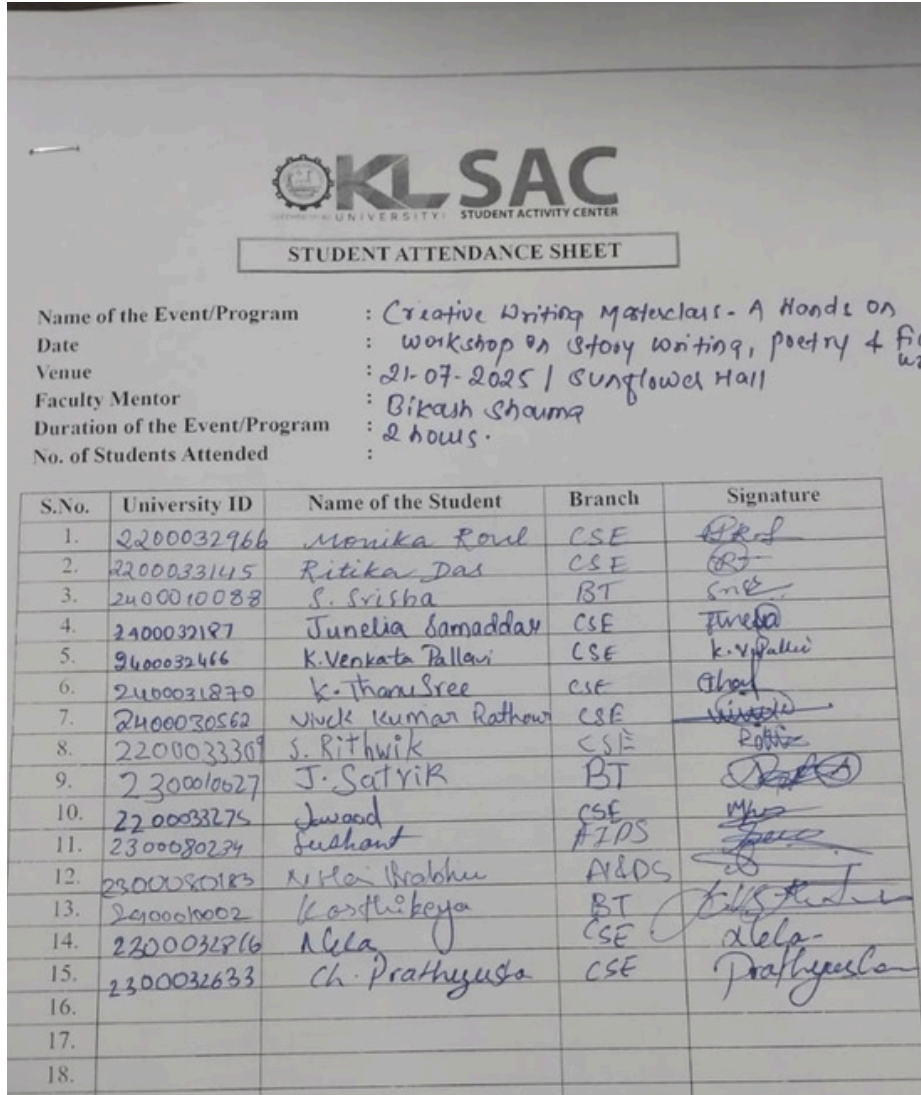 KL SAC
UNIVERSITY STUDENT ACTIVITY CENTER
STUDENT ATTENDANCE SHEET
Name of the Event/Program : Creative Writing Masterclass - A Hands on
Date : workshop on Story writing, poetry &
Venue : 21-07-2025 / Sunflower Hall
Faculty Mentor : Bikash Sharma
Duration of the Event/Program : 2 hours.
No. of Students Attended :
S.No. University ID Name of the Student Branch Signature
1. 2200032966 Monika Roul CSE
2. 2200033145 Ritika Das CSE
3. 2400010088 S. Srisha BT
4. 2400032187 Junelia Samaddar CSE Junelia
5. 2400032466 K.Venkata Pallavi CSE K.V.Pallvi
6. 2400031870 K.ThanuSree CSE
7. 2400030562 Vivek Kumar Rathour CSE
8. 2200033309 S. Rithwik CSE
9. 2300010027 J. Satvik BT
10. 2200033275 Jawaad CSE
11. 2300080234 Sushant AIDS
12. 2300080183 Prabhu AI&DS
13. Karthikeya BT
14. 2300032816 CSE
15. 2300032633 Ch. Prathyusha CSE Prathyusha
16.
17.
18.